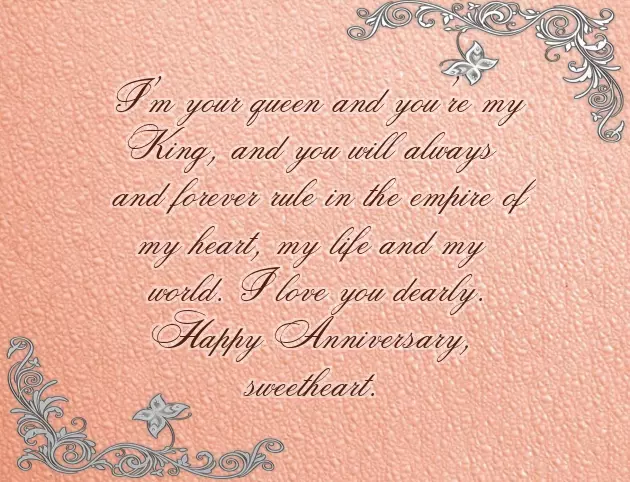 I'm your queen and you're my
King, and you will always
and forever rule in the empire of
my heart, my life and my
world. I love you dearly.
Happy Anniversary,
sweetheart.